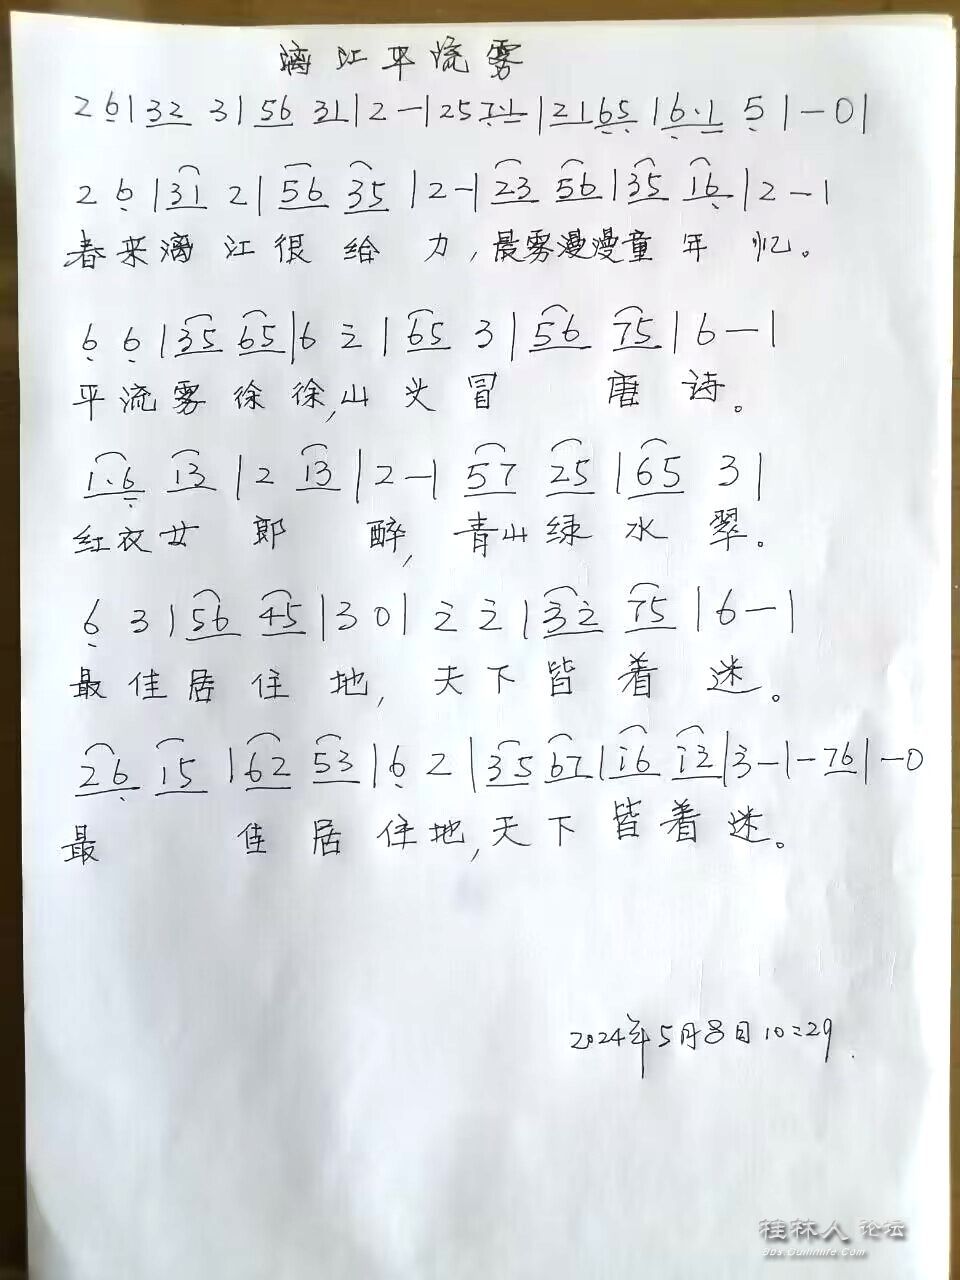 漓江平流雾
2 6 | 32 3 | 56 31 | 2 — | 25 7·1 | 21 65 | 6·1 5 | — 0 |
2 6 | 31 2 | 56 35 | 2 — | 23 56 | 35 16 | 2 — |
春来漓江很给力,晨雾漫漫童年忆。
6 6 | 35 65 | 6 2 | 65 3 | 56 75 | 6 — |
平流雾徐徐,山头冒唐诗。
1·6 13 | 2 13 | 2 — | 57 25 | 65 3 |
红衣女郎醉,青山绿水翠。
6 3 | 56 45 | 3 0 | 2 2 | 32 75 | 6 — |
最佳居住地,天下皆着迷。
26 15 | 62 53 | 6 2 | 35 67 | 16 12 | 3 — | — 76 | — 0
最佳居住地,天下皆着迷。
2024年5月8日10:29.
桂林人论坛
bbs.Guilinlife.Com